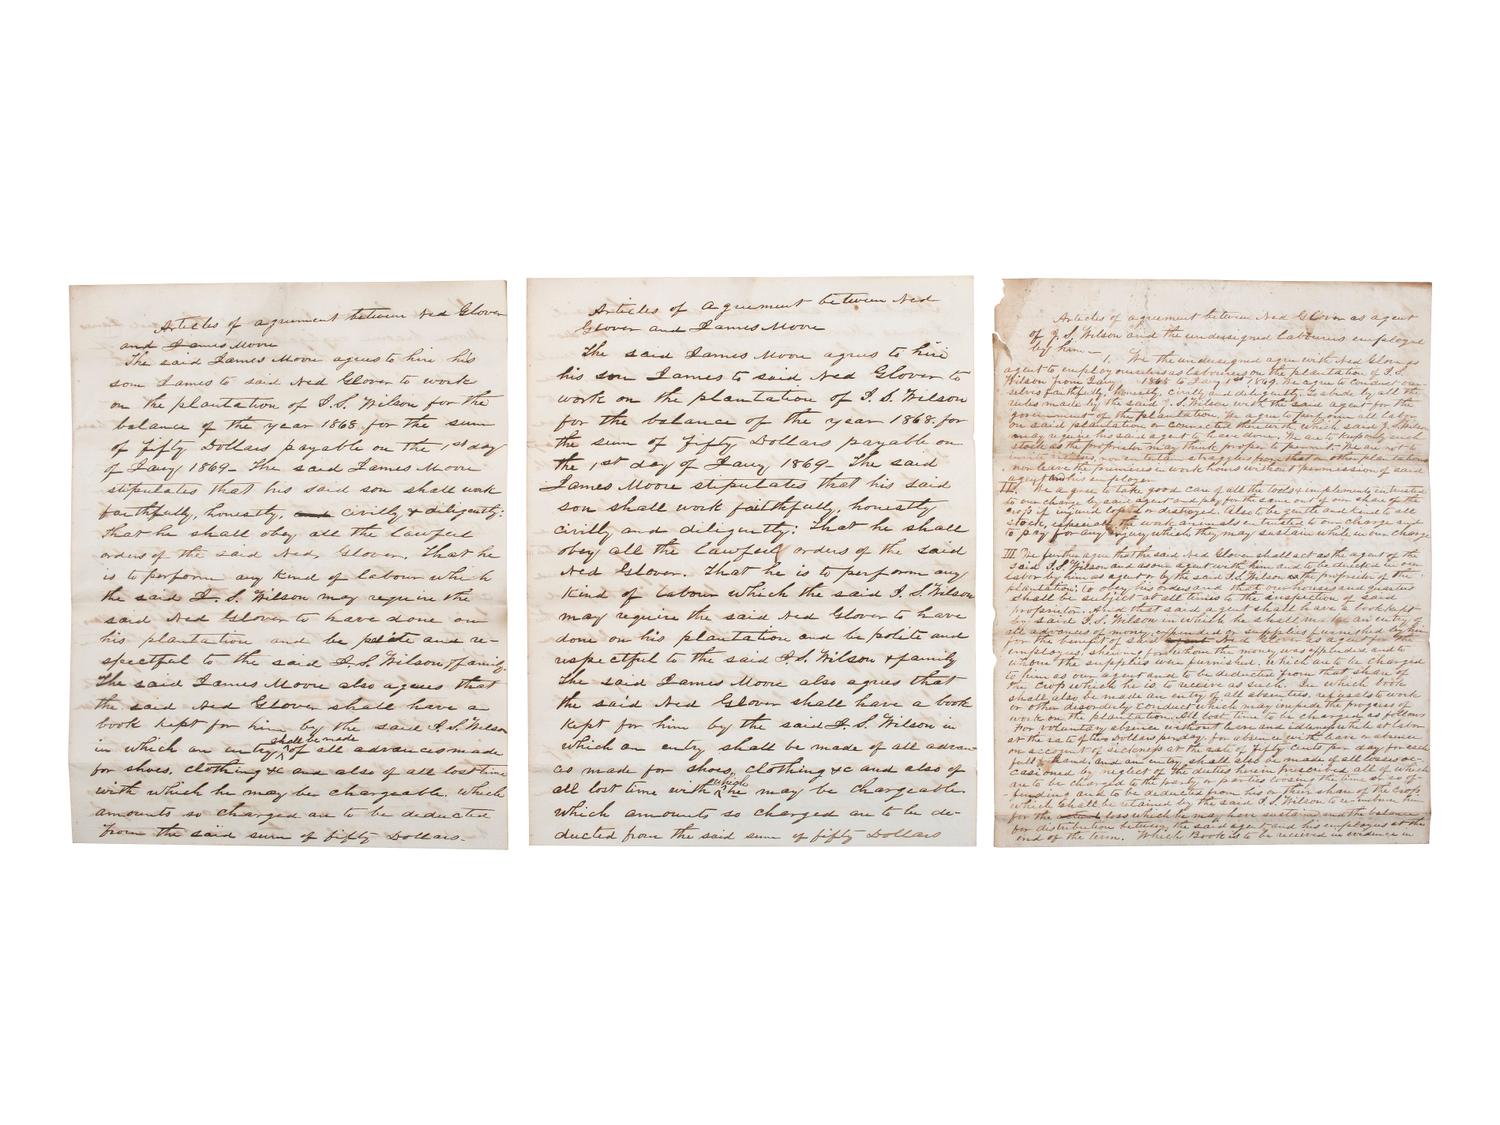 Articles of agreement between Ned Glover
and James Moore
The said James Moore agrees to hire his
son James to said Ned Glover to work
on the plantation of J. S. Wilson for the
balance of the year 1868, for the sum
of fifty Dollars payable on the 1st day
of Jany 1869 - The said James Moore
stipulates that his said son shall work
faithfully, honestly, civilly & diligently:
that he shall obey all the lawful
orders of the said Ned Glover. That he
is to perform any kind of labour which
the said J. S. Wilson may require the
said Ned Glover to have done on
his plantation and be polite and re-
spectful to the said J. S. Wilson & family.
The said James Moore also agrees that
the said Ned Glover shall have a
book kept for him by the said J. S. Wilson
shall be made
in which an entry of all advances made
for shoes, clothing &c and also of all lost time
with which he may be chargeable which
amounts so charged are to be deducted
from the said sum of fifty Dollars.
Articles of Agreement between Ned
Glover and James Moore
The said James Moore agrees to hire
his son James to said Ned Glover to
work on the plantation of J. S. Wilson
for the balance of the year 1868, for
the sum of fifty Dollars payable on
the 1st day of Jany 1869 - The said
James Moore stipulates that his said
son shall work faithfully, honestly
civilly and diligently: That he shall
obey all the lawful orders of the said
Ned Glover. That he is to perform any
kind of labour which the said J. S. Wilson
may require the said Ned Glover to have
done on his plantation and be polite and
respectful to the said J. S. Wilson & family
The said James Moore also agrees that
the said Ned Glover shall have a book
kept for him by the said J. S. Wilson in
which an entry shall be made of all advan-
ces made for shoes, clothing &c and also of
which
all lost time with he may be chargeable
which amounts so charged are to be de-
ducted from the said sum of fifty Dollars
Articles of agreement between Ned Glover as agent
of J. S. Wilson and the undersigned labourers employed
by him -
1. We the undersigned agree with Ned Glover as
agent to employ ourselves as labourers on the plantation of J. S.
Wilson from Jany 1868 to Jany 1st 1869. We agree to conduct our-
selves faithfully, honestly, civilly and diligently. To abide by all the
rules made by the said J. S. Wilson with the said agent for the
government of the plantation. We agree to perform all labor
on said plantation or connected therewith which said J. S. Wilson
may require his said agent to have done. We are to keep only such
stock as the proprietor may think proper to permit. We are not to
invite visitors, nor entertain stragglers from that or other plantations
nor leave the premises in work hours without permission of said
agent and his employer
II. We agree to take good care of all the tools & implements intrusted
to our charge by said agent and pay for the same out of our share of the
crop if injured lost or destroyed. Also to be gentle and kind to all
stock, especially the work animals intrusted to our charge and
to pay for any injury which they may sustain while in our charge
III. We further agree that the said Ned Glover shall act as the agent of the
said J. S. Wilson and as our agent with him and to be directed in our
labor by him as agent or by the said J. S. Wilson as the proprietor of the
plantation; to obey his orders and that our houses and quarters
shall be subject at all times to the inspection of said
proprietor. And that said agent shall have a book kept
by said J. S. Wilson in which he shall make an entry of
all advances of money expended or supplies furnished by him
for the benefit of said Ned Glover as agent or the
employees, shewing for whom the money was expended and to
whom the supplies were furnished, which are to be charged
to him as our agent and to be deducted from that share of
the crop which he is to receive as such. In which book
shall also be made an entry of all absenties, refusals to work
or other disorderly conduct which may impede the progress of
work on the plantation. All lost time to be charged as follows
For voluntary absence without leave and idleness while at labor
at the rate of two Dollars per day, for absence with leave or absence
on account of sickness at the rate of fifty cents per day for each
full hand, and an entry shall also be made of all loses oc-
casioned by neglect of the duties herein prescribed all of which
are to be charged to the party or parties loosing the time or so of-
fending and to be deducted from his or their share of the crop
which shall be retained by the said J. S. Wilson to reimburse him
for the loss which he may have sustained and the balance
for distribution between the said agent and his employees at the
end of the term. Which Book is to be received in evidence in